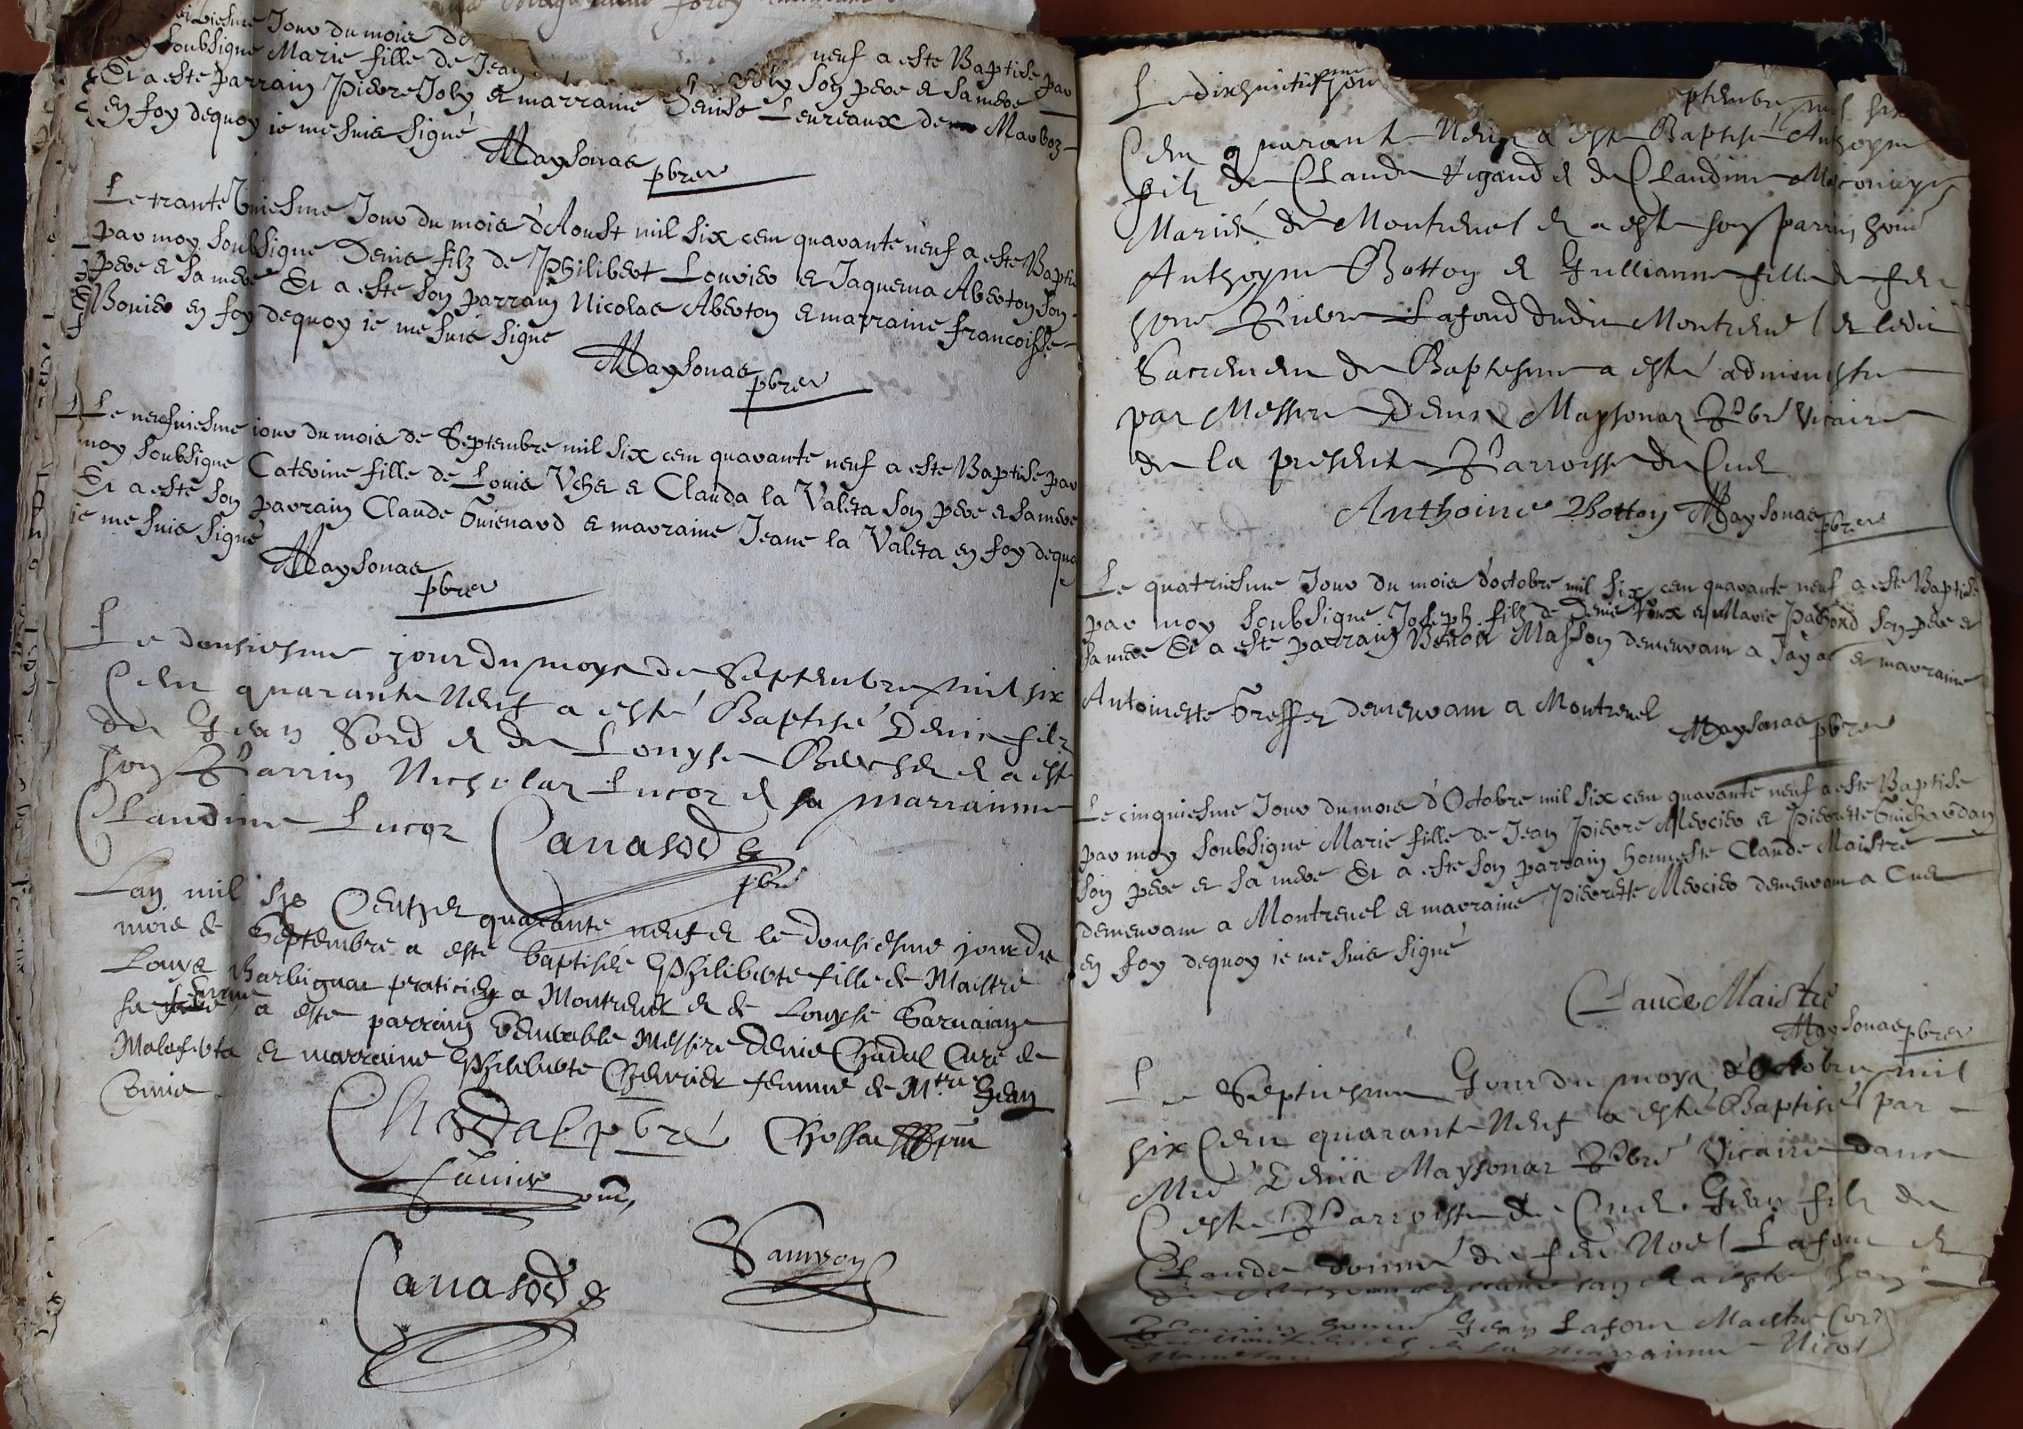 Jour du mois de
neuf a este Baptise par
moy soubsigne Marie fille de Jean Joly son pere et sa mere
Et a este parrain Pierre Joly et marraine Denise Leureaux de Marboz
en foy dequoy ie me suis signé
Maysonas pbre
Le trante Uniesme Jour du mois d'Aoust mil six cen quarante neuf a este Baptise
par moy soubsigne Denis filz de Philibert Louvier et Jaquema Aberton son
pere et sa mere Et a este son parrain Nicolas Aberton et marraine francoisse
Bonier en foy dequoy ie me suis signe
Maysonas
pbre
Le neufuiesme iour du mois de Septembre mil six cen quarante neuf a este Baptise par
moy soubsigne Caterine fille de Louis Uchet et Clauda la Valeta son pere et sa mere
Et a este son parrain Claude Guienard et marraine Jeane la Valeta en foy dequoy
ie me suis signé
Maysonas
pbre
Le dousiesme jour du moys de Septembre mil six
Cent quarante Neuf a esté Baptisé Denis filz
de Jean Sord et de Louyse Berchet et a este
son Parrin Nicholas Lucoz et sa marrainne
Claudine Lucoz
Canasod
pbre
Lan mil six Centz et quarante neuf et le dousiesme jour du
mois de Septembre a este baptisée Philiberte fille de Maistre
Louys Barbignac praticien a Montreuel et de Louyse
sa femme a este parrain Venerable Messire Denis Chadal Curé de
Malafreta et marraine Philiberte Chevrier femme de M.tre Jean
Chadal pbre
Canasod
Samson
Le dixhuictiesme Jour
ptembre mil six
Cent quarante Neuf a este Baptisé Anthoyne
filz de Claude Rigaud et de Claudine
Mariés de Montreuel et a este son parrin honn
Anthoyne Bottoy et Jullianne fille de feu
honn Pierre Lafond dudit Montreuel et ledit
Sacrement de Baptesme a esté administré
par Messire Denis Maysonas Pbre Vicaire
de la presente Parroisse de Cuet
Anthoine Bottoy Maysonas
pbre
Le quatriesme Jour du mois d'octobre mil six cen quarante neuf a este Baptise
par moy soubsigne Joseph filz de Denis Roux et Marie son pere et
sa mere Et a este parrain Benoit Masson demeurant a Jayat et marraine
Antoinette Greffet demeurant a Montreuel
Maysonas pbre
Le cinquiesme Jour du mois d'Octobre mil six cen quarante neuf a este Baptise
par moy soubsigne Marie fille de Jean Pierre Mercier et Pierrette Guichardan
son pere et sa mere Et a este son parrain honneste Claude Maistre
demeurant a Montreuel et marraine Pierrette Mercier demeurant a Cuet
en foy dequoy ie me suis signé
Claude Maistre
Maysonas pbre
Le Septiesme Jour du moys d'Octobre mil
six Cent quarante Neuf a esté Baptisé par
Mre Denis Maysonas Pbre Vicaire dans
Ceste Parroisse de Cuet Jean filz de
Claude donné de feu Noel Lafont et
a este son
Parrin honn Jean Lafont Maistre Cor
et la Marrainne Nicol